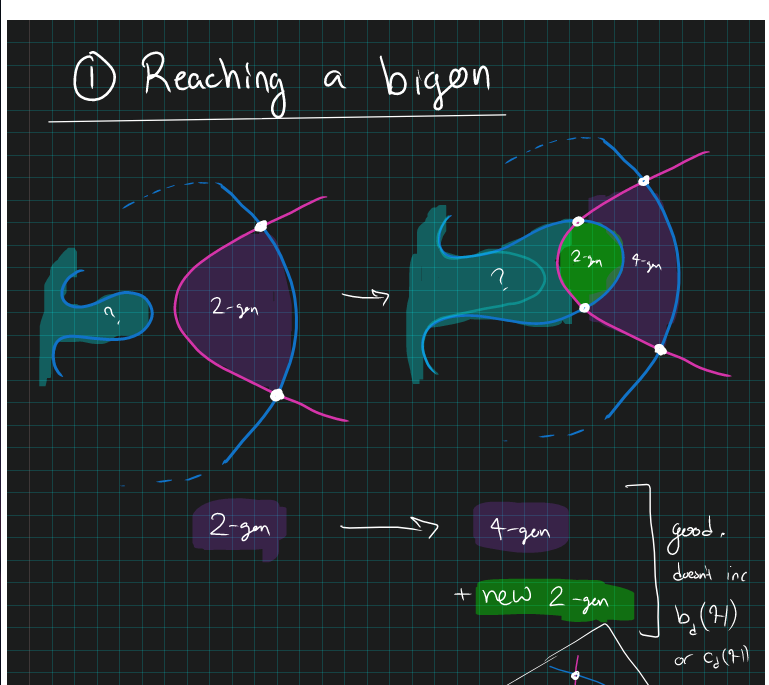 ① Reaching a bigon
?
2-gon
→
?
2-gon
4-gon
2-gon → 4-gon
+ new 2-gon
good.
doesn't inc
b_d(H)
or c_d(H)